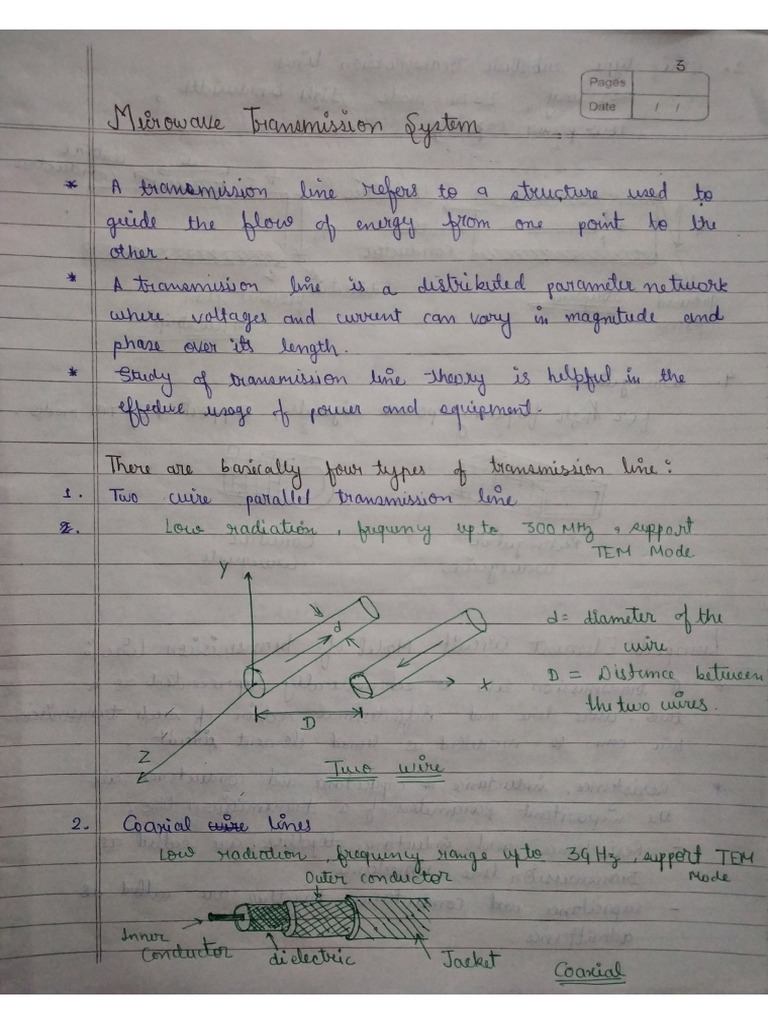 3
Pages
Date / /
Microwave Transmission System
* A transmission line refers to a structure used to
guide the flow of energy from one point to the
other.
* A transmission line is a distributed parameter network
where voltages and current can vary in magnitude and
phase over its length.
* Study of transmission line theory is helpful in the
effective usage of power and equipment.
There are basically four types of transmission line:
1. Two wire parallel transmission line
2. Low radiation, frequency up to 300 MHz, support
TEM Mode
Y
d
d = diameter of the
wire
X
D = Distance between
the two wires.
D
Z
Two wire
2. Coaxial wire lines
Low radiation, frequency range up to 3GHz, support TEM
Mode
Outer conductor
Inner
Conductor
dielectric
Jacket
Coaxial